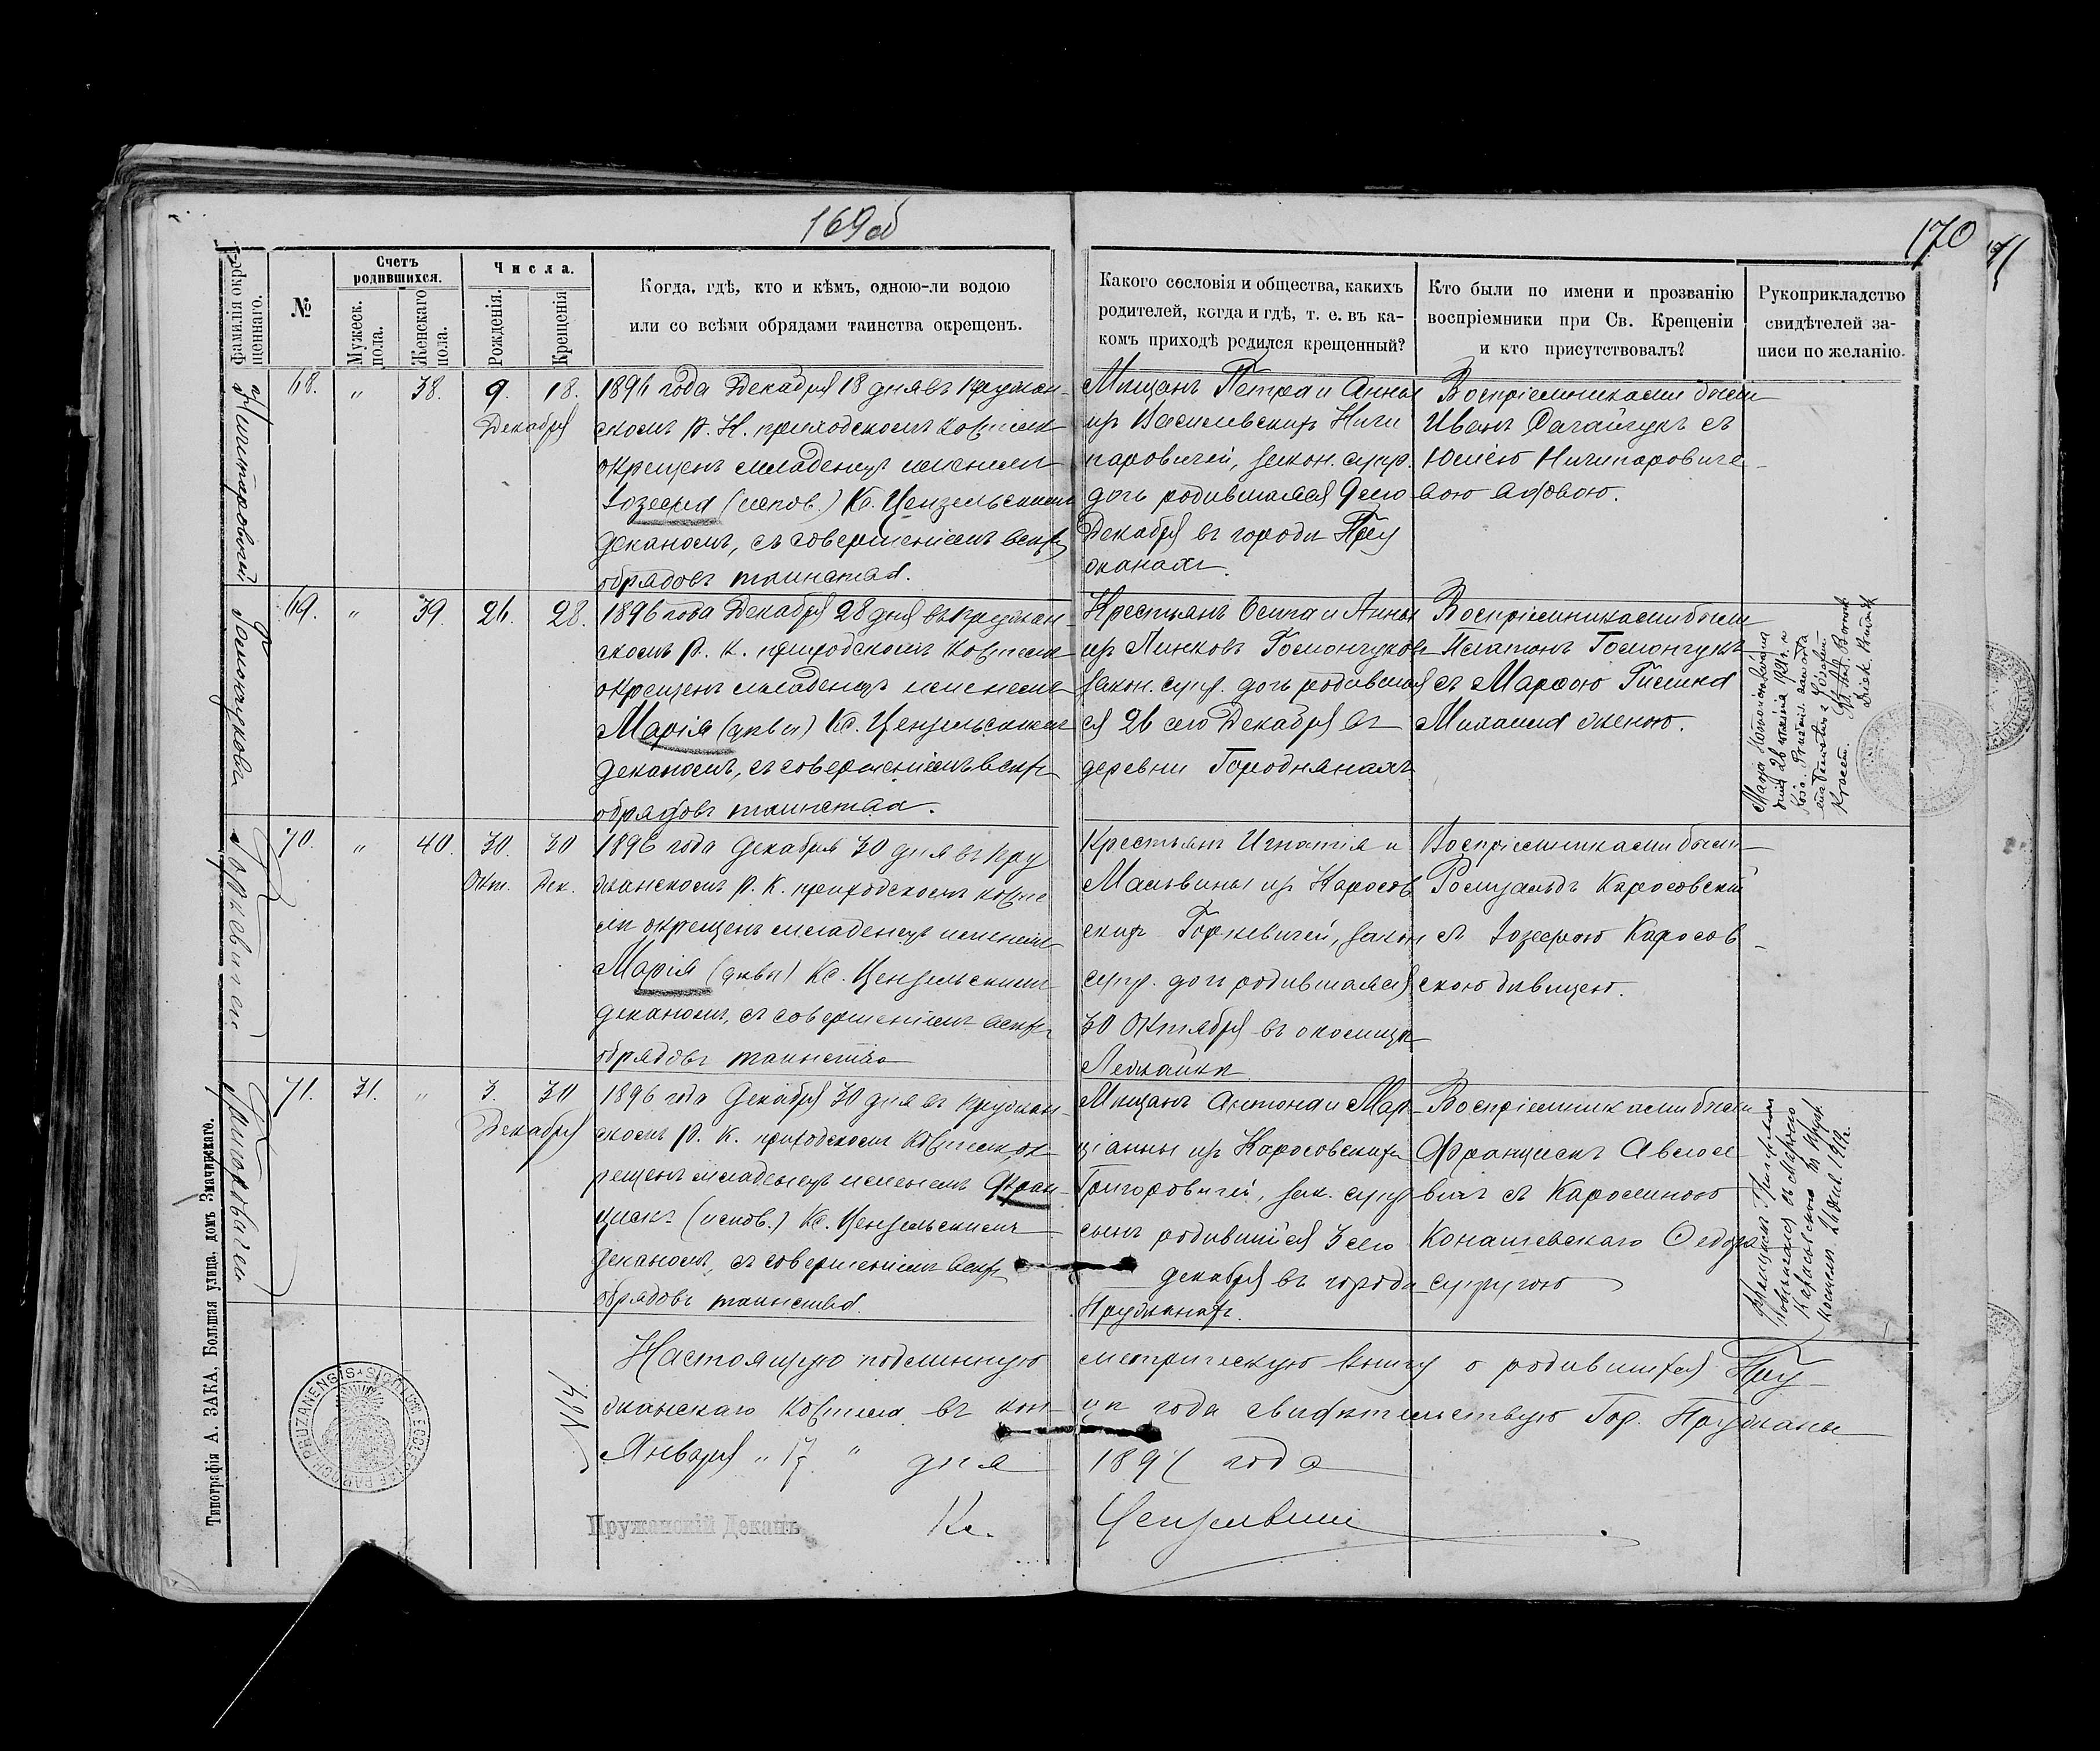 169 об
170
171
Фамилія окре-
щеннаго.
№
Счетъ
родившихся.
Мужеск.
пола.
Женскаго
пола.
Числа.
Рожденія.
Крещенія
Когда, гдѣ, кто и кѣмъ, одною-ли водою
или со всѣми обрядами таинства окрещенъ.
Какого сословія и общества, какихъ
родителей, когда и гдѣ, т. е. въ ка-
комъ приходѣ родился крещенный?
Кто были по имени и прозванію
воспріемники при Св. Крещеніи
и кто присутствовалъ?
Рукоприкладство
свидѣтелей за-
писи по желанію.
Ничипоровичей
68. " 38. 9. 18.
Декабря
1896 года Декабря 18 дня въ Пружан-
скомъ Р. К. приходскомъ костелѣ
окрещенъ младенецъ именемъ
Іозефа (испов.) Кс. Цензельскимъ
деканомъ, съ совершеніемъ всѣхъ
обрядовъ таинства.
Мѣщанъ Петра и Анны
изъ Василевскихъ Ничи
паровичей, закон. супр.
дочь родившаяся 9 сего
Декабря въ городѣ Пру
жанахъ.
Воспріемниками были
Иванъ съ
Юліею Ничипорович-
вою вдовою.
Гомончукова
69. " 39. 26. 28.
1896 года Декабря 28 дня въ Пружан-
скомъ Р. К. приходскомъ костелѣ
окрещенъ младенецъ именемъ
Марія (дѣвы) Кс. Цензельскимъ
деканомъ, съ совершеніемъ всѣхъ
обрядовъ таинства.
Крестьянъ Осипа и Анны
изъ Линковъ Гомончуковъ
закон. супр. дочь родивша
ся 26 сего Декабря въ
деревни Городнянахъ
Воспріемниками были
Платонъ Гомончукъ
съ Марѳою
Михаила женою.
Горкевичей
70. " 40. 30. 30
Окт. Дек.
1896 года Декабря 30 дня въ Пру
жанскомъ Р. К. приходскомъ косте
лѣ окрещенъ младенецъ именемъ
Марія (дѣвы) Кс. Цензельскимъ
деканомъ, съ совершеніемъ всѣхъ
обрядовъ таинства
Крестьянъ Игнатія и
Мальвины изъ Каросов
скихъ Горкевичей, закон
супр. дочь родившаяся
30 Октября въ околицѣ
Воспріемниками были
Ромуальдъ Каросовскій
съ Іозефою Каросов-
скою дѣвицею.
Григоровичей
71. 31. " 3. 30
Декабря
1896 года Декабря 30 дня въ Пружан-
скомъ Р. К. приходскомъ костелѣ ок-
рещенъ младенецъ именемъ Фран-
цискъ (испов.) Кс. Цензельскимъ
деканомъ, съ совершеніемъ всѣхъ
обрядовъ таинства.
Мѣщанъ Антона и Мар-
ціанны изъ Каросовскихъ
Григоровичей, зак. супр.
сынъ родившійся 3 сего
декабря въ городѣ
Пружанахъ.
Воспріемниками были
Францискъ
съ Каролиною
Конашевскаго Ѳедора
супругою
Настоящую подлинную метрическую книгу о родившихся Пру-
жанскаго костела въ кон цѣ года свидѣтельствую Гор. Пружаны
Января " 17 " дня 1897 года
№ 64
Пружанскій Деканъ Кс. Цензельскій
Типографія А. ЗАКА, Большая улица, домъ Значинскаго.